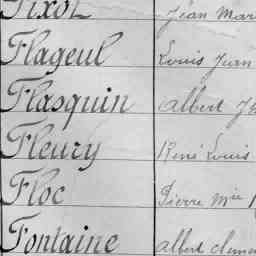 Fixot Jean Mar
Flageul Louis Jean
Flasquin Albert
Fleury René Louis
Floc Pierre Mie
Fontaine Albert Clemen